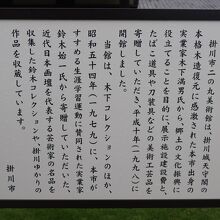 掛川市二の丸美術館は、掛川城天守閣の
本格木造復元に感激された本市出身の
実業家木下満男氏から、郷土の文化振興に
寄与することを目的に、展示施設建設費と、
たばこ道具や刀装具などの美術工芸品を
寄贈していただき、平成十年(一九九八)に
開館しました。
当館は、木下コレクションのほか、
昭和五十四年(一九七九)に、本市が
すすめる生涯学習運動に賛同された実業家
鈴木始一氏から寄贈していただいた、
近代日本画壇を代表する芸術家の名品を
収集した鈴木コレクションや、掛川ゆかりの
作品を収蔵しています。
掛川市